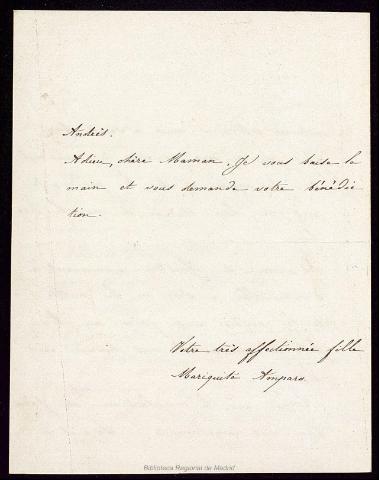 Andrés.
Adieu, chère Maman. Je vous baise la
main et vous demande votre bénédic
tion.
Votre très affectionnée fille
Mariquita Amparo.
Biblioteca Regional de Madrid